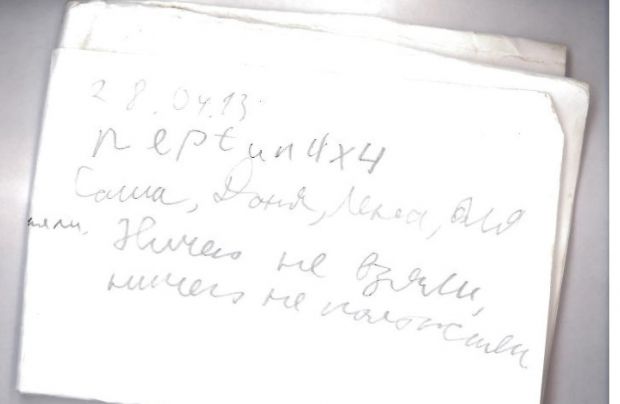 28.04.13
neptun4x4
Саша, Даня, Лена, Оля
яли. Ничего не взяли,
ничего не положили